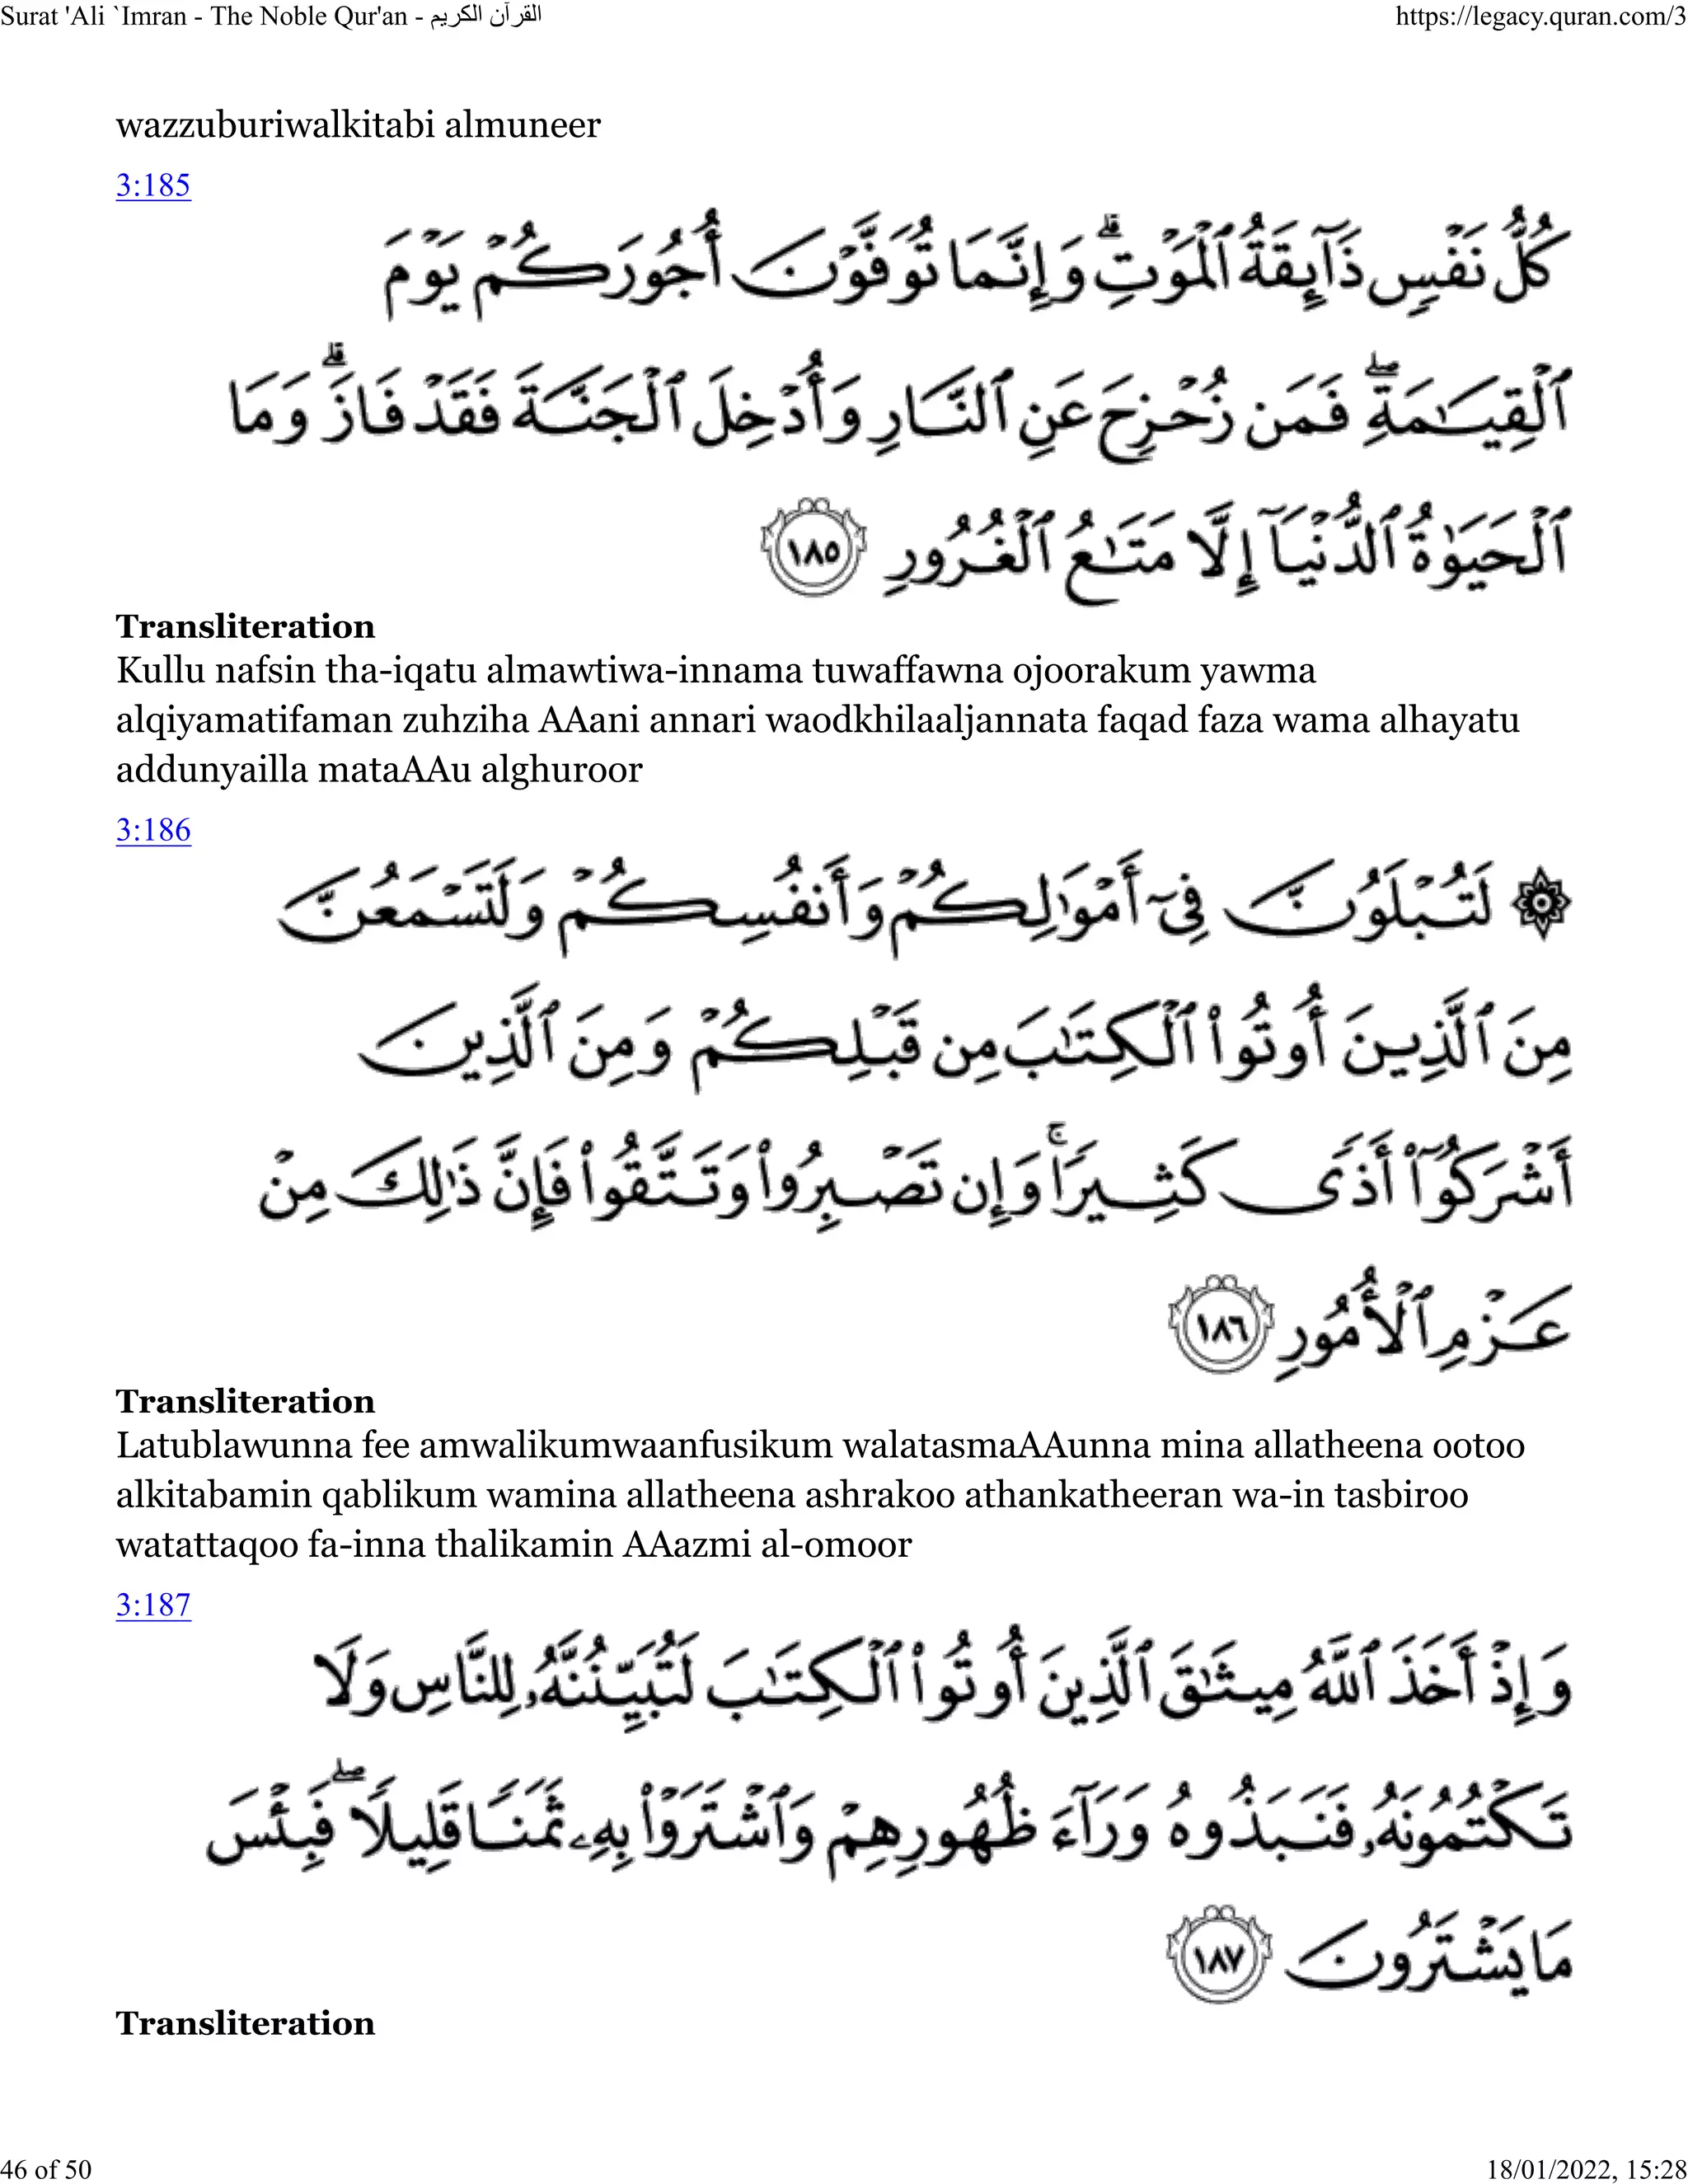 Surat 'Ali `Imran - The Noble Qur'an - القرآن الكريم
https://legacy.quran.com/3
wazzuburiwalkitabi almuneer
3:185
كُلُّ نَفْسٍ ذَآئِقَةُ ٱلْمَوْتِ ۗ وَإِنَّمَا تُوَفَّوْنَ أُجُورَكُمْ يَوْمَ
ٱلْقِيَـٰمَةِ ۖ فَمَن زُحْزِحَ عَنِ ٱلنَّارِ وَأُدْخِلَ ٱلْجَنَّةَ فَقَدْ فَازَ ۗ وَمَا
ٱلْحَيَوٰةُ ٱلدُّنْيَآ إِلَّا مَتَـٰعُ ٱلْغُرُورِ ١٨٥
Transliteration
Kullu nafsin tha-iqatu almawtiwa-innama tuwaffawna ojoorakum yawma
alqiyamatifaman zuhziha AAani annari waodkhilaaljannata faqad faza wama alhayatu
addunyailla mataAAu alghuroor
3:186
۞ لَتُبْلَوُنَّ فِىٓ أَمْوَٰلِكُمْ وَأَنفُسِكُمْ وَلَتَسْمَعُنَّ
مِنَ ٱلَّذِينَ أُوتُوا۟ ٱلْكِتَـٰبَ مِن قَبْلِكُمْ وَمِنَ ٱلَّذِينَ
أَشْرَكُوٓا۟ أَذًى كَثِيرًا ۚ وَإِن تَصْبِرُوا۟ وَتَتَّقُوا۟ فَإِنَّ ذَٰلِكَ مِنْ
عَزْمِ ٱلْأُمُورِ ١٨٦
Transliteration
Latublawunna fee amwalikumwaanfusikum walatasmaAAunna mina allatheena ootoo
alkitabamin qablikum wamina allatheena ashrakoo athankatheeran wa-in tasbiroo
watattaqoo fa-inna thalikamin AAazmi al-omoor
3:187
وَإِذْ أَخَذَ ٱللَّهُ مِيثَـٰقَ ٱلَّذِينَ أُوتُوا۟ ٱلْكِتَـٰبَ لَتُبَيِّنُنَّهُۥ لِلنَّاسِ وَلَا
تَكْتُمُونَهُۥ فَنَبَذُوهُ وَرَآءَ ظُهُورِهِمْ وَٱشْتَرَوْا۟ بِهِۦ ثَمَنًا قَلِيلًا ۖ فَبِئْسَ
مَا يَشْتَرُونَ ١٨٧
Transliteration
46 of 50
18/01/2022, 15:28